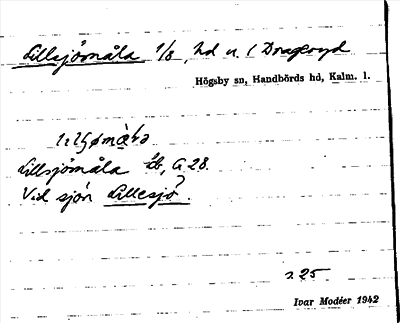 Lillsjömåla 1/8, hd u. / Drageryd
Högsby sn, Handbörds hd, Kalm. l.
Lillsjömåla G 28.
Vid sjön Lillesjö?.
s. 25
Ivar Modéer 1942